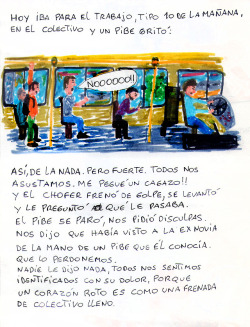 HOY IBA PARA EL TRABAJO, TIPO 10 DE LA MAÑANA,
EN EL COLECTIVO Y UN PIBE GRITÓ:
NOOOOOO!!
ASÍ, DE LA NADA. PERO FUERTE. TODOS NOS
ASUSTAMOS. ME PEGUÉ UN CAGAZO!!
Y EL CHOFER FRENÓ DE GOLPE, SE LEVANTÓ
Y LE PREGUNTÓ QUÉ LE PASABA.
EL PIBE SE PARÓ, NOS PIDIÓ DISCULPAS.
NOS DIJO QUE HABÍA VISTO A LA EX NOVIA
DE LA MANO DE UN PIBE QUE ÉL CONOCÍA.
QUE LO PERDONEMOS.
NADIE LE DIJO NADA, TODOS NOS SENTIMOS
IDENTIFICADOS CON SU DOLOR, PORQUE
UN CORAZÓN ROTO ES COMO UNA FRENADA
DE COLECTIVO LLENO.